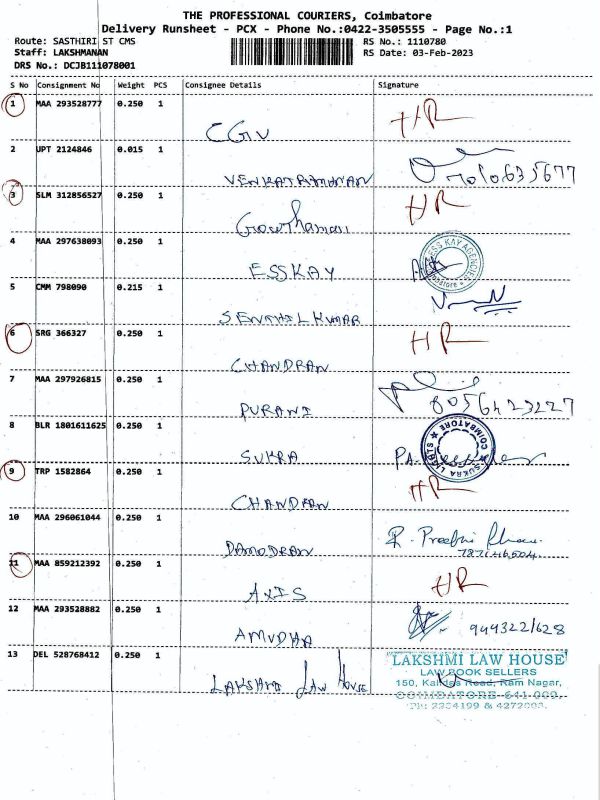 THE PROFESSIONAL COURIERS, Coimbatore
Delivery Runsheet - PCX - Phone No.:0422-3505555 - Page No.:1
Route: SASTHIRI ST CMS RS No.: 1110780
Staff: LAKSHMANAN RS Date: 03-Feb-2023
DRS No.: DCJB111078001
S No Consignment No Weight PCS Consignee Details Signature
1 MAA 293528777 0.250 1 CGV HR
2 UPT 2124846 0.015 1 VENKATRAMANAN
3 SLM 312856527 0.250 1 Gowthaman HR
4 MAA 297638093 0.250 1 ESSKAY ESS KAY AGENCIES
5 CMM 798090 0.215 1 SENTHIL KUMAR
6 SRG 366327 0.250 1 CHANDRAN HR
7 MAA 297926815 0.250 1 PURANI 8056423227
8 BLR 1801611625 0.250 1 SUKRA SUKRA LIGHTS COIMBATORE
9 TRP 1582864 0.250 1 CHANDRAN HR
10 MAA 296061044 0.250 1 DAMODRAN
11 MAA 859212392 0.250 1 AXIS HR
12 MAA 293528882 0.250 1 AMUDHA
13 DEL 528768412 0.250 1 LAKSHMI LAW HOUSE LAKSHMI LAW HOUSE
LAW BOOK SELLERS
150, Kalidas Road, Ram Nagar,
COIMBATORE-641 009.
Ph: 2234199 & 4272003.